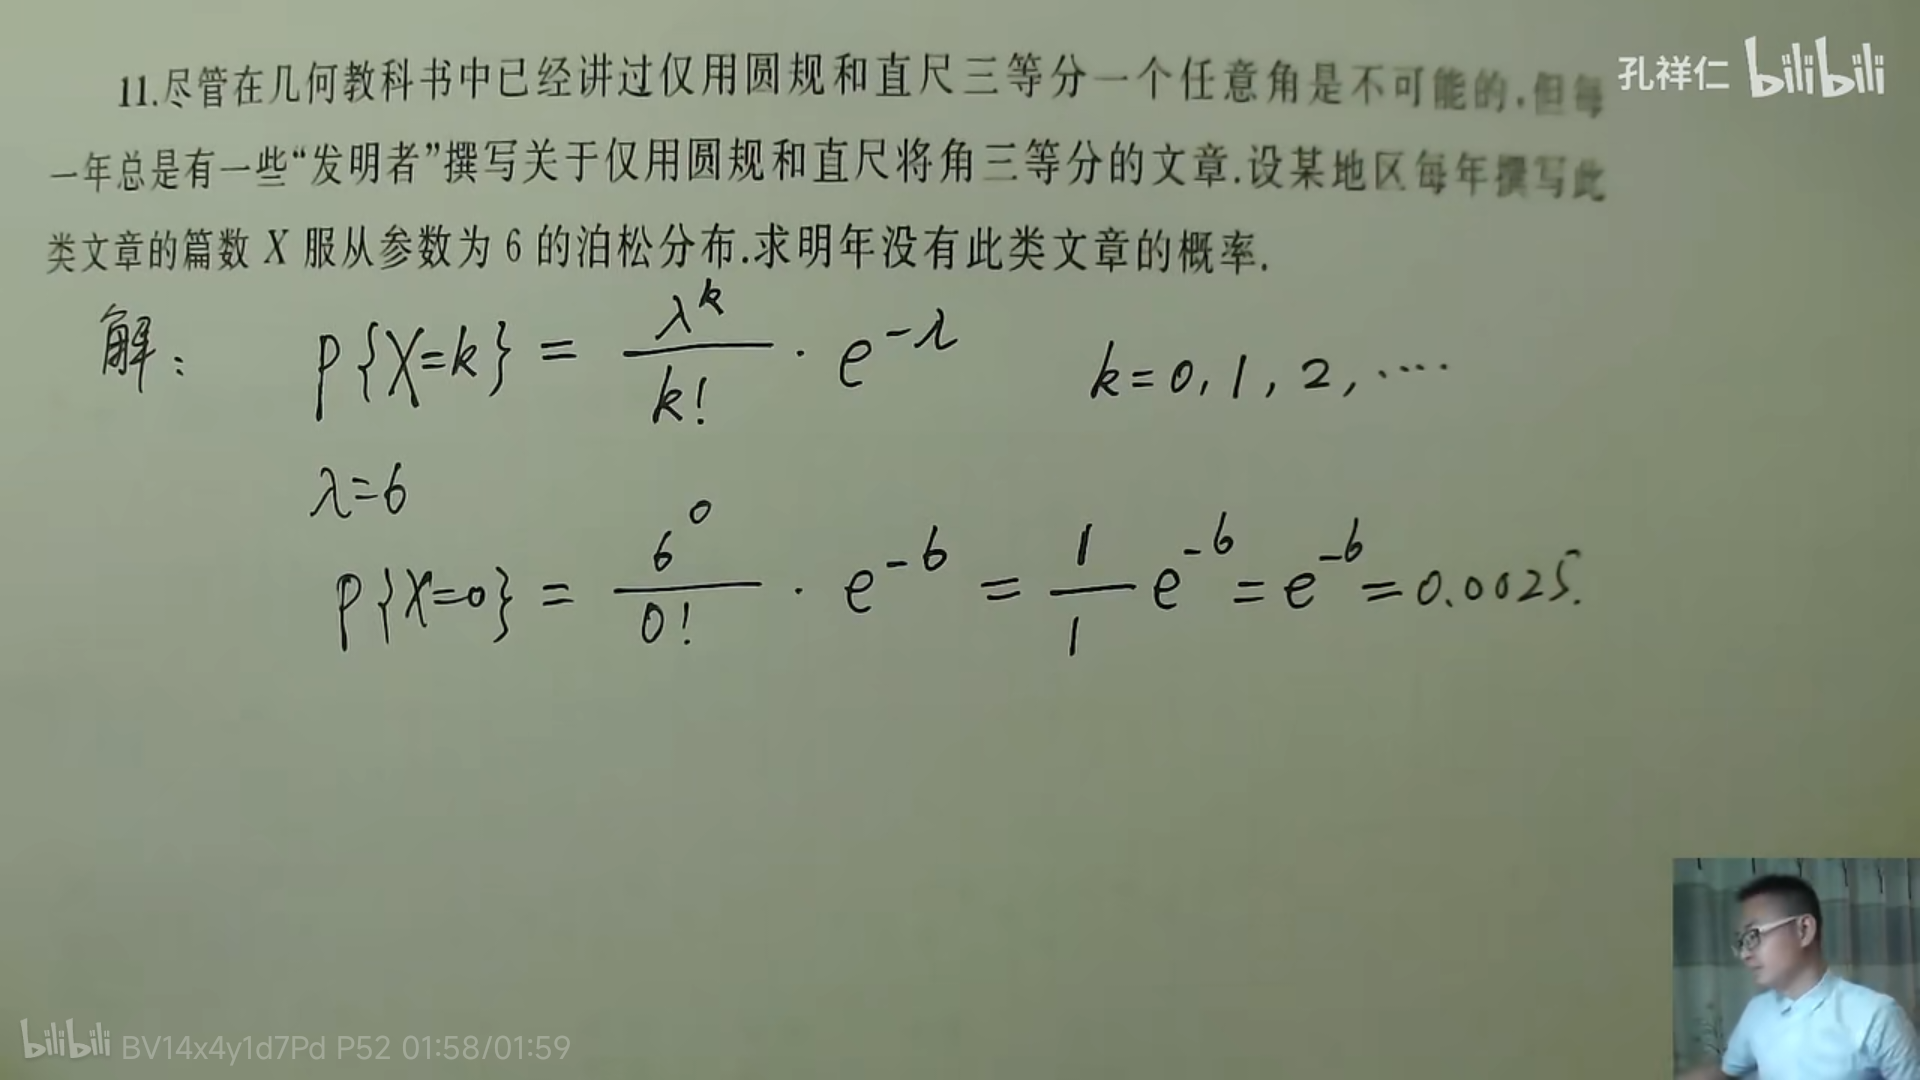 孔祥仁 bilibili
11.尽管在几何教科书中已经讲过仅用圆规和直尺三等分一个任意角是不可能的,但每
一年总是有一些“发明者”撰写关于仅用圆规和直尺将角三等分的文章.设某地区每年撰写此
类文章的篇数 X 服从参数为 6 的泊松分布.求明年没有此类文章的概率.
解: P{X=k} = λ^k / k! · e^{-λ} k=0,1,2,····
λ=6
P{X=0} = 6^0 / 0! · e^{-6} = 1/1 e^{-6} = e^{-6} = 0.0025.
bilibili BV14x4y1d7Pd P52 01:58/01:59